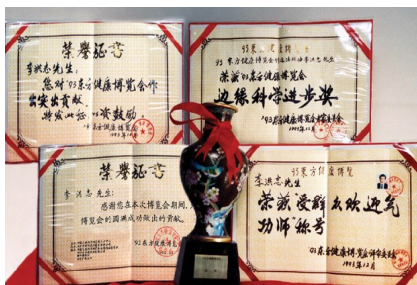 荣誉证书
李洪志先生：
您对'93东方健康博览会作
出突出贡献，
特发此证 以资鼓励
'93东方健康博览会
'93东方健康博览会
李洪志先生
荣获'93东方健康博览会
边缘科学进步奖
'93东方健康博览会
1993年12月
荣誉证书
李洪志先生：
感谢您在本次博览会期间，
博览会的圆满成功做出的贡献。
'93东方健康博览会
'93东方健康博览
李洪志先生
荣获受群众欢迎气
功师称号
'93东方健康博览会评审委员会
1993年12月